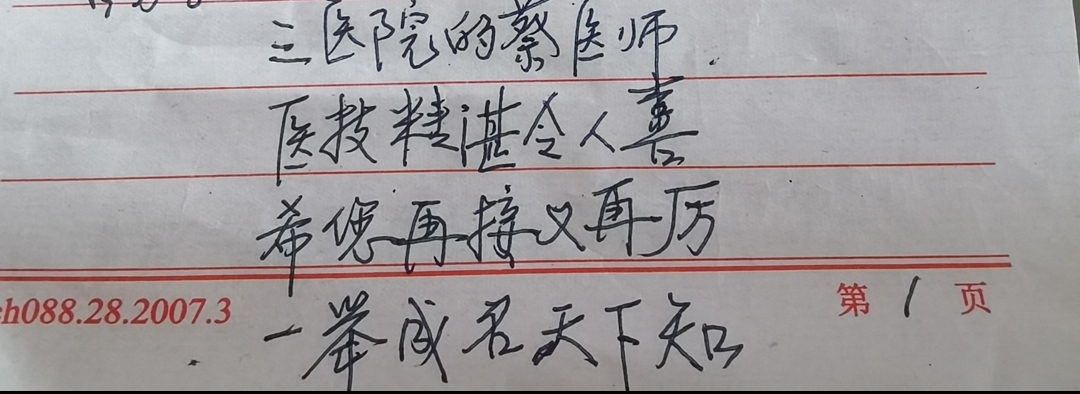 三医院的蔡医师
医技精湛令人喜
希您再接又再厉
ch088.28.2007.3
第1页
一举成名天下知